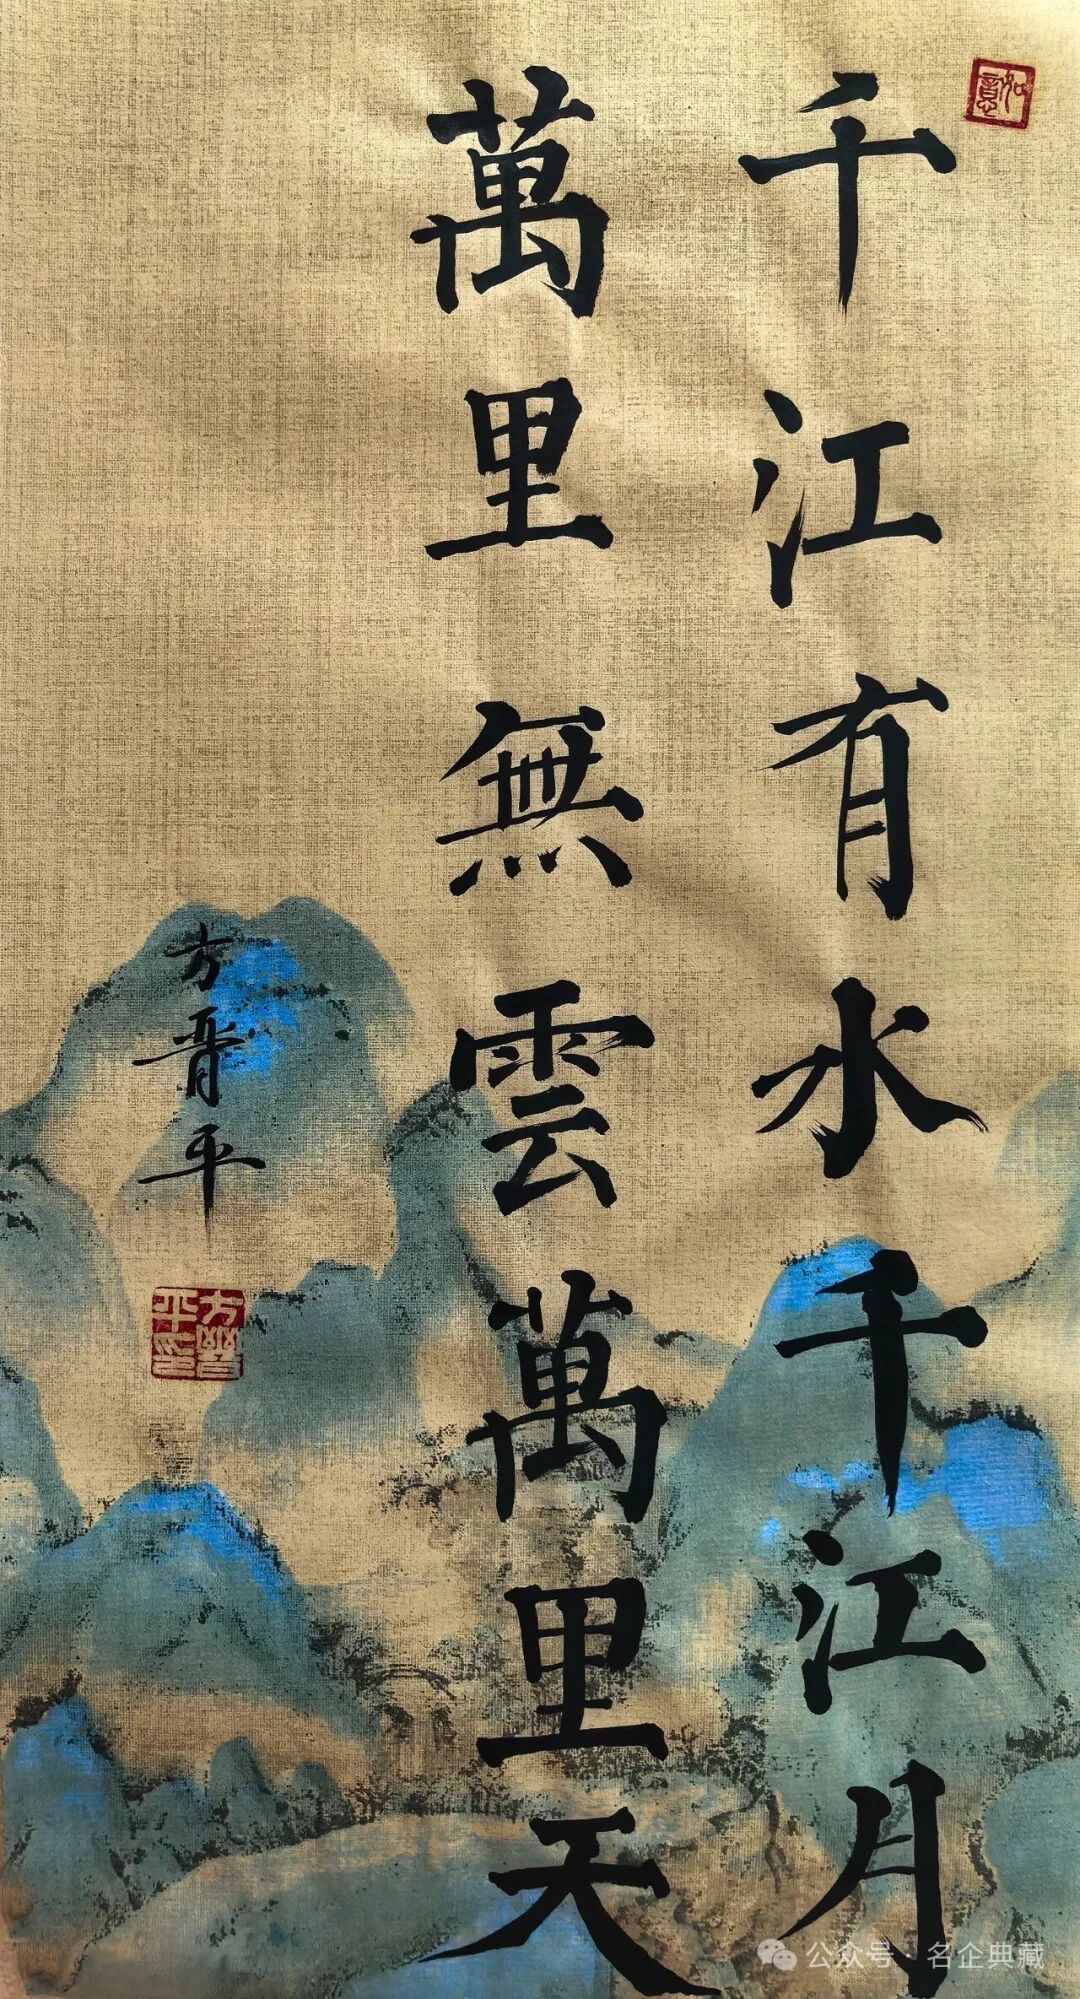 如意
千江有水千江月
萬里無雲萬里天
方晋平
方晉平印
公众号·名企典藏